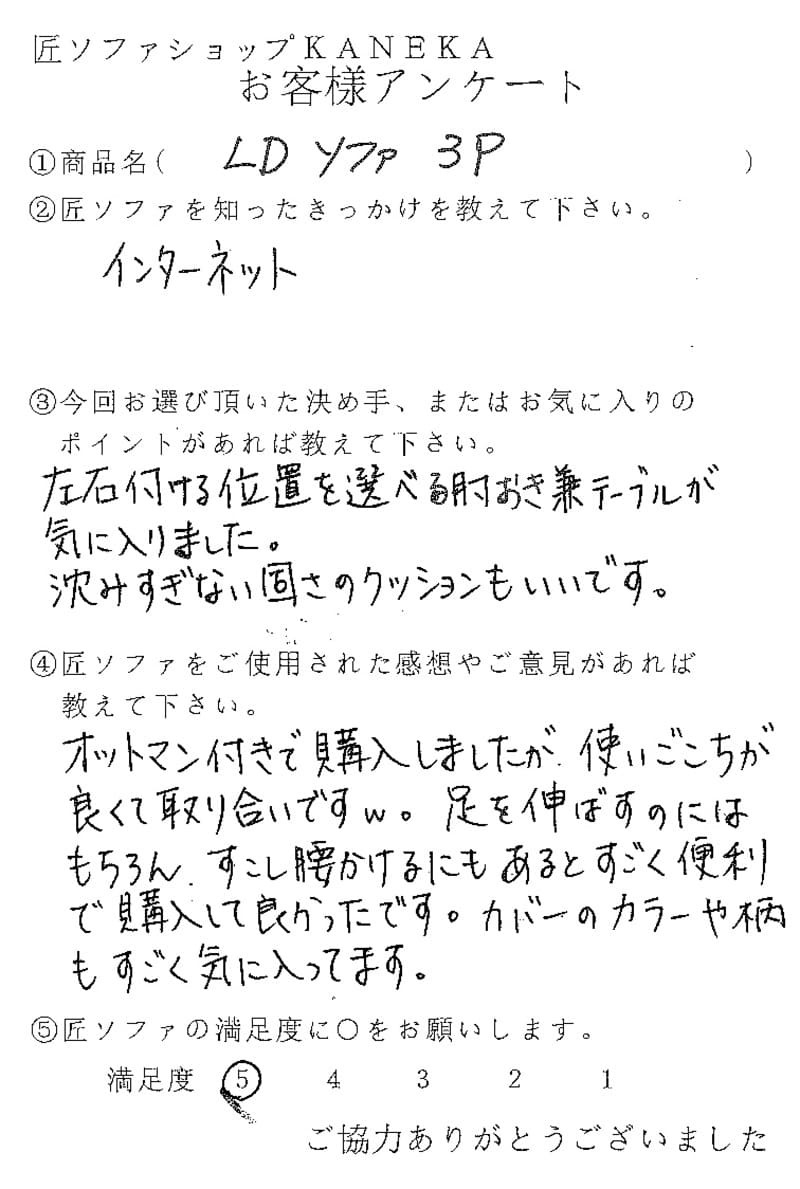 匠ソファショップKANEKA
お客様アンケート
①商品名( LDソファ 3P )
②匠ソファを知ったきっかけを教えて下さい。
インターネット
③今回お選び頂いた決め手、またはお気に入りの
ポイントがあれば教えて下さい。
左右付ける位置を選べる肘おき兼テーブルが
気に入りました。
沈みすぎない固さのクッションもいいです。
④匠ソファをご使用された感想やご意見があれば
教えて下さい。
オットマン付きで購入しましたが、使いごこちが
良くて取り合いですw。足を伸ばすのには
もちろん、すこし腰かけるにもあるとすごく便利
で購入して良かったです。カバーのカラーや柄
もすごく気に入ってます。
⑤匠ソファの満足度に○をお願いします。
満足度 5 4 3 2 1
ご協力ありがとうございました